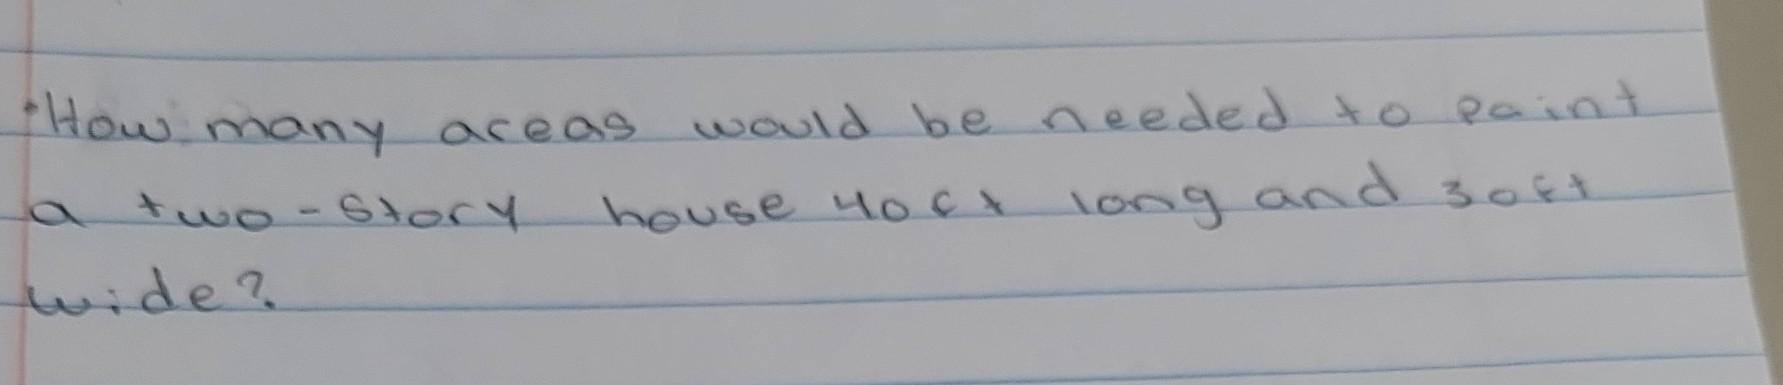 •How many areas would be needed to paint
a two-story house 40ft long and 30ft
wide?